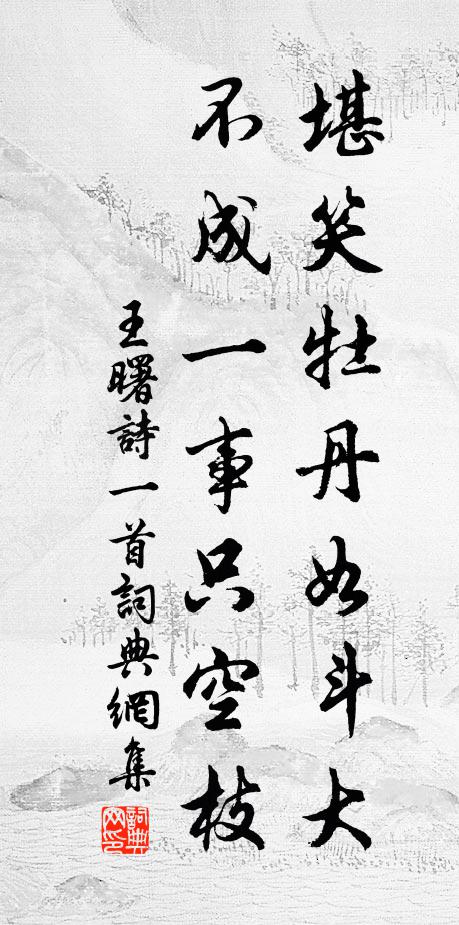 堪笑牡丹如斗大
不成一事只空枝
王曙詩一首詞典網集
詞典
网印